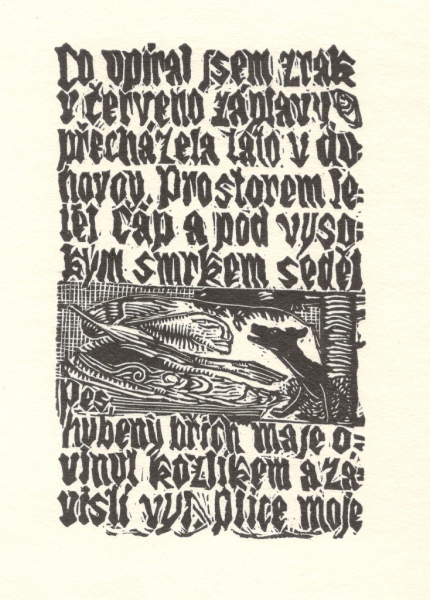 Co opíral jsem zrak
v červeno záplavy
přecházela tato v du-
hovou. Prostorem le-
těl čáp a pod vyso-
kým smrkem seděl
pes,
hubený břich maje o-
vinut kozlíkem a zá-
vislí vyl. Plíce moje